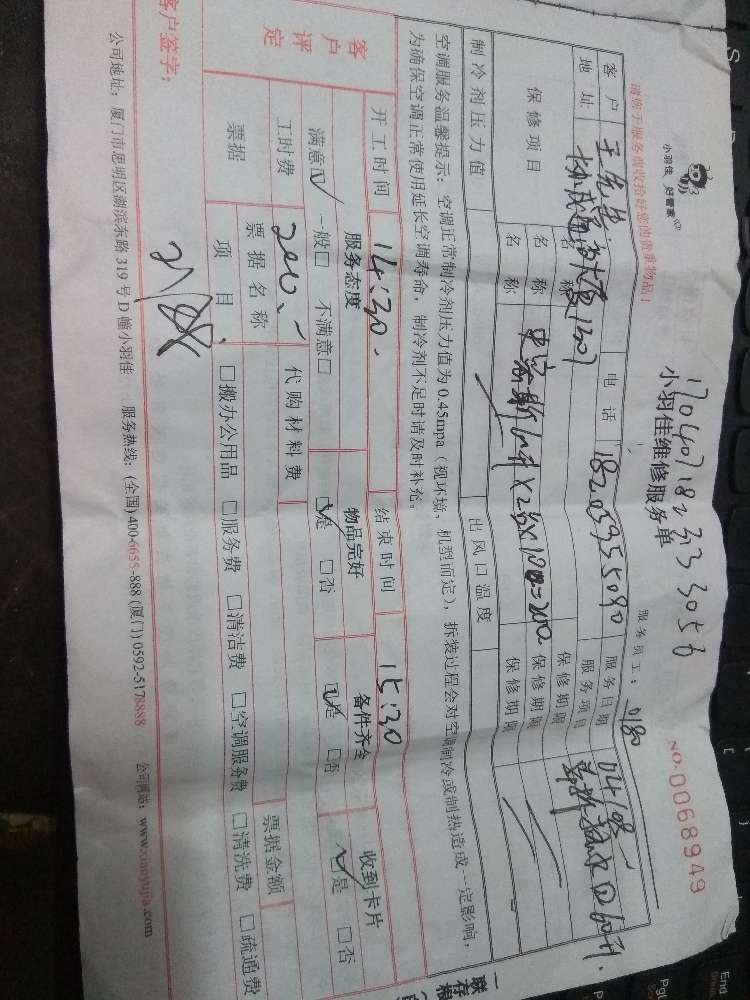 小羽佳 好管家
170407182333056
小羽佳维修服务单
NO.0068949
请您于服务前收拾好您的贵重物品！
服务员工： 0180
客户 王先生 电话 18205955090 服务日期 04/08
地址 1307 服务项目
保修项目 名称 保修期限
名称 保修期限
名称 保修期限
制冷剂压力值 出风口温度
空调服务温馨提示：空调正常制冷剂压力值为0.45mpa（视环境、机型而定），拆装过程会对空调制冷或制热造成一定影响，
为确保空调正常使用延长空调寿命，制冷剂不足时请及时补充。
客户评定
开工时间 14:30 结束时间 15:30
服务态度 物品完好 备件齐全 收到卡片
满意☑ 一般□ 不满意□ ☑是 □否 ☑是 □否 ☑是 □否
工时费 200 代购材料费
票据 票据名称 票据金额
项目 □搬办公用品 □服务费 □清洁费 □空调服务费 □清洗费 □疏通费
客户签字：
公司地址：厦门市思明区湖滨东路319号D幢小羽佳 服务热线：(全国)400-6655-888 (厦门)0592-5178888 公司网站：www.xiaoyujia.com
一联存根
End